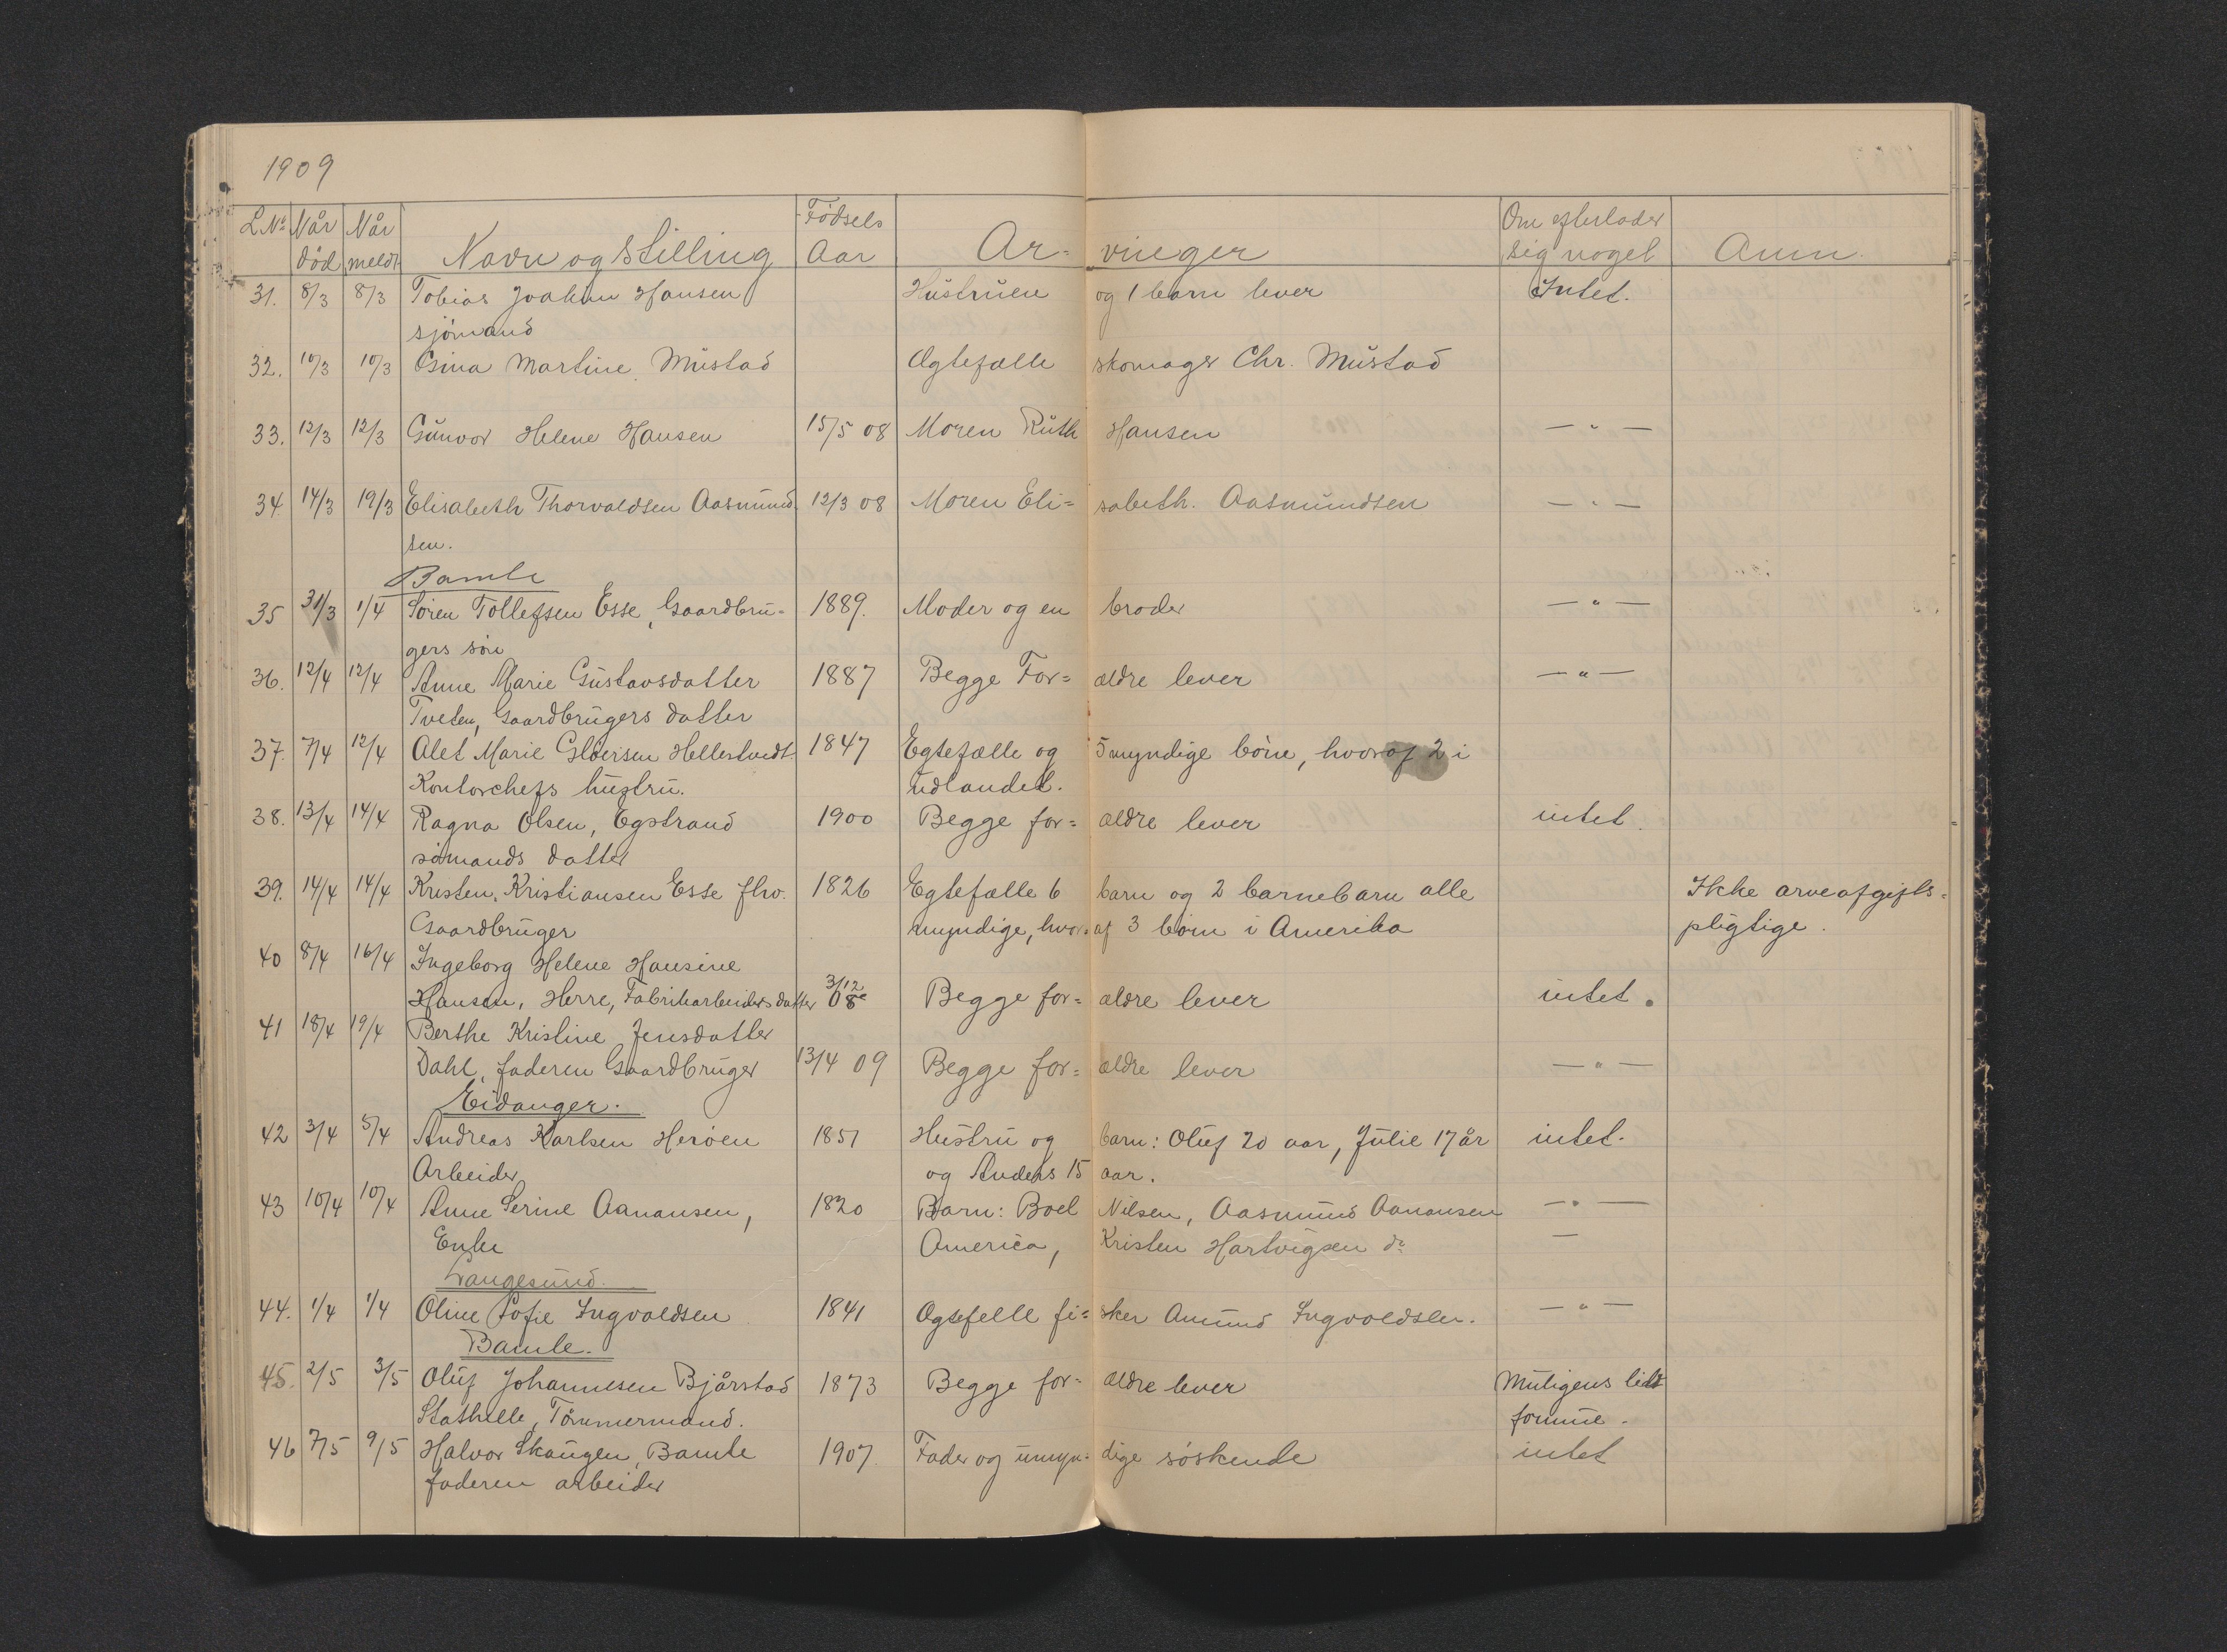 1909
L.No Når død Når meldt Navn og Stilling Fødsels Aar Ar- vinger Om efterlader sig noget Anm.
31. 8/3 8/3 Tobias Joakim Hansen Hustruen og 1 barn lever Intet.
sjömand
32. 10/3 10/3 Gina Martine Mustad Ægtefælle skomager Chr. Mustad
33. 12/3 12/3 Gunvor Helene Hansen 15/5 08 Moren Ruth Hansen — " —
34 14/3 19/3 Elisabeth Thorvaldsen Aasmund- 12/3 08 Moren Eli= sabeth. Aasmundsen — " —
sen.
Bamle
35 31/3 1/4 Sören Tollefsen Esse, Gaardbru- 1889. Moder og en broder — " —
gers sön
36. 12/4 12/4 Anne Marie Gustavsdatter 1887 Begge For= ældre lever — " —
Tveten, Gaardbrugers datter
37. 7/4 12/4 Alet Marie Gloersen Hellestvedt 1847 Egtefælle og 5 myndige börn, hvoraf 2 i
Kontorchefs hustru. udlandet.
38. 13/4 14/4 Ragna Olsen, Egstrand 1900 Begge for= ældre lever intet.
sömands datter
39. 14/4 14/4 Kristen Kristiansen Esse fhv. 1826 Egtefælle 6 barn og 2 barnebarn alle Ikke arveafgifts-
Gaardbruger myndige, hvor- af 3 börn i Amerika pligtige.
40 8/4 16/4 Ingeborg Helene Hansine
Hansen, Herre, Fabrikarbeiders datter 3/12 08 Begge for= ældre lever intet.
41 18/4 19/4 Berthe Kristine Jensdatter
Dahl, faderen Gaardbruger 13/4 09 Begge for= ældre lever — " —
Eidanger.
42 3/4 5/4 Andreas Karlsen Heröen 1851 Hustru og barn: Oluf 20 aar, Julie 17 år intet.
Arbeider og Anders 15 aar.
43 10/4 10/4 Anne Serine Aanansen, 1820 Barn: Boel Nilsen, Aasmund Aanansen — " —
Enke America, Kristen Hartvigsen do —
Langesund.
44. 1/4 1/4 Oline Sofie Ingvaldsen 1841 Ogtefelle fi= sker Amund Ingvoldsen. — " —
Bamle.
45. 2/5 3/5 Oluf Johannesen Bjårstad 1873 Begge for- ældre lever Muligens lidt
Stathelle, Tömmermand. formue.
46 7/5 9/5 Halvor Skaugen, Bamle 1907. Fader og umyn- dige söskende intet
faderen arbeider